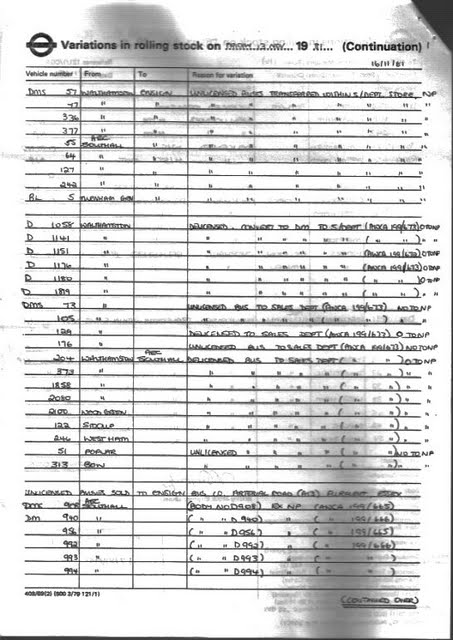 Variations in rolling stock on FRIDAY 13 NOV 19 81 (Continuation)
16/11/81
Vehicle number From To Reason for variation
DMS 57 WALTHAMSTOW ENSIGN UNLICENSED BUSES TRANSFERRED WITHIN S/DEPT. STORE, NP
77 " " " " " " " "
336 " " " " " " " "
377 " " " " " " " "
55 AEC SOUTHALL " " " " " " "
64 " " " " " " " "
127 " " " " " " " "
242 " " " " " " " "
RL 5 TWANHAM GDN " " " " " " "
D 1058 WALTHAMSTOW DELICENSED. CONVERT TO DM TO S/DEPT (ANCA 199/673) O TO NP
D 1141 " " " " " " ( " " ) " "
D 1151 " " " " " " (ANCA 199/673) O TO NP
D 1176 " " " " " " (ANCA 199/673) O TO NP
D 1180 " " " " " " ( " " ) O TO NP
D 1189 " " " " " " ( " " ) " "
DMS 73 " UNLICENSED BUS TO SALES DEPT (ANCA 199/677) NO TO NP
105 " " " " " " ( " " ) " "
129 " DELICENSED TO SALES DEPT (ANCA 199/677) O TO NP
176 " UNLICENSED BUS TO SALES DEPT (ANCA 199/677) NO TO NP
204 WALTHAMSTOW AEC SOUTHALL DELICENSED BUS TO SALES DEPT ( " " ) O TO NP
373 " " " " " " ( " " ) " "
1858 " " " " " " ( " " ) " "
2050 " " " " " " ( " " ) " "
2100 WOOD GREEN " " " " " ( " " ) " "
122 SIDCUP " " " " " ( " " ) " "
246 WEST HAM " " " " " ( " " ) " "
51 POPLAR UNLICENSED " " " ( " " ) NO TO NP
313 BOW " " " " ( " " ) " "
UNLICENSED BUSES SOLD TO ENSIGN BUS CO. ARTERIAL ROAD (A13) PURFLEET ESSEX
DMS AEC SOUTHALL (BODY NO D908) EX NP (ANCA 199/665)
DM 940 " ( " " D940) " ( " 199/666)
956 " ( " " D956) " ( " 199/665)
992 " ( " " D992) " ( " 199/666)
993 " ( " " D993) " ( " " )
994 " ( " " D994) " ( " " )
(CONTINUED OVER)